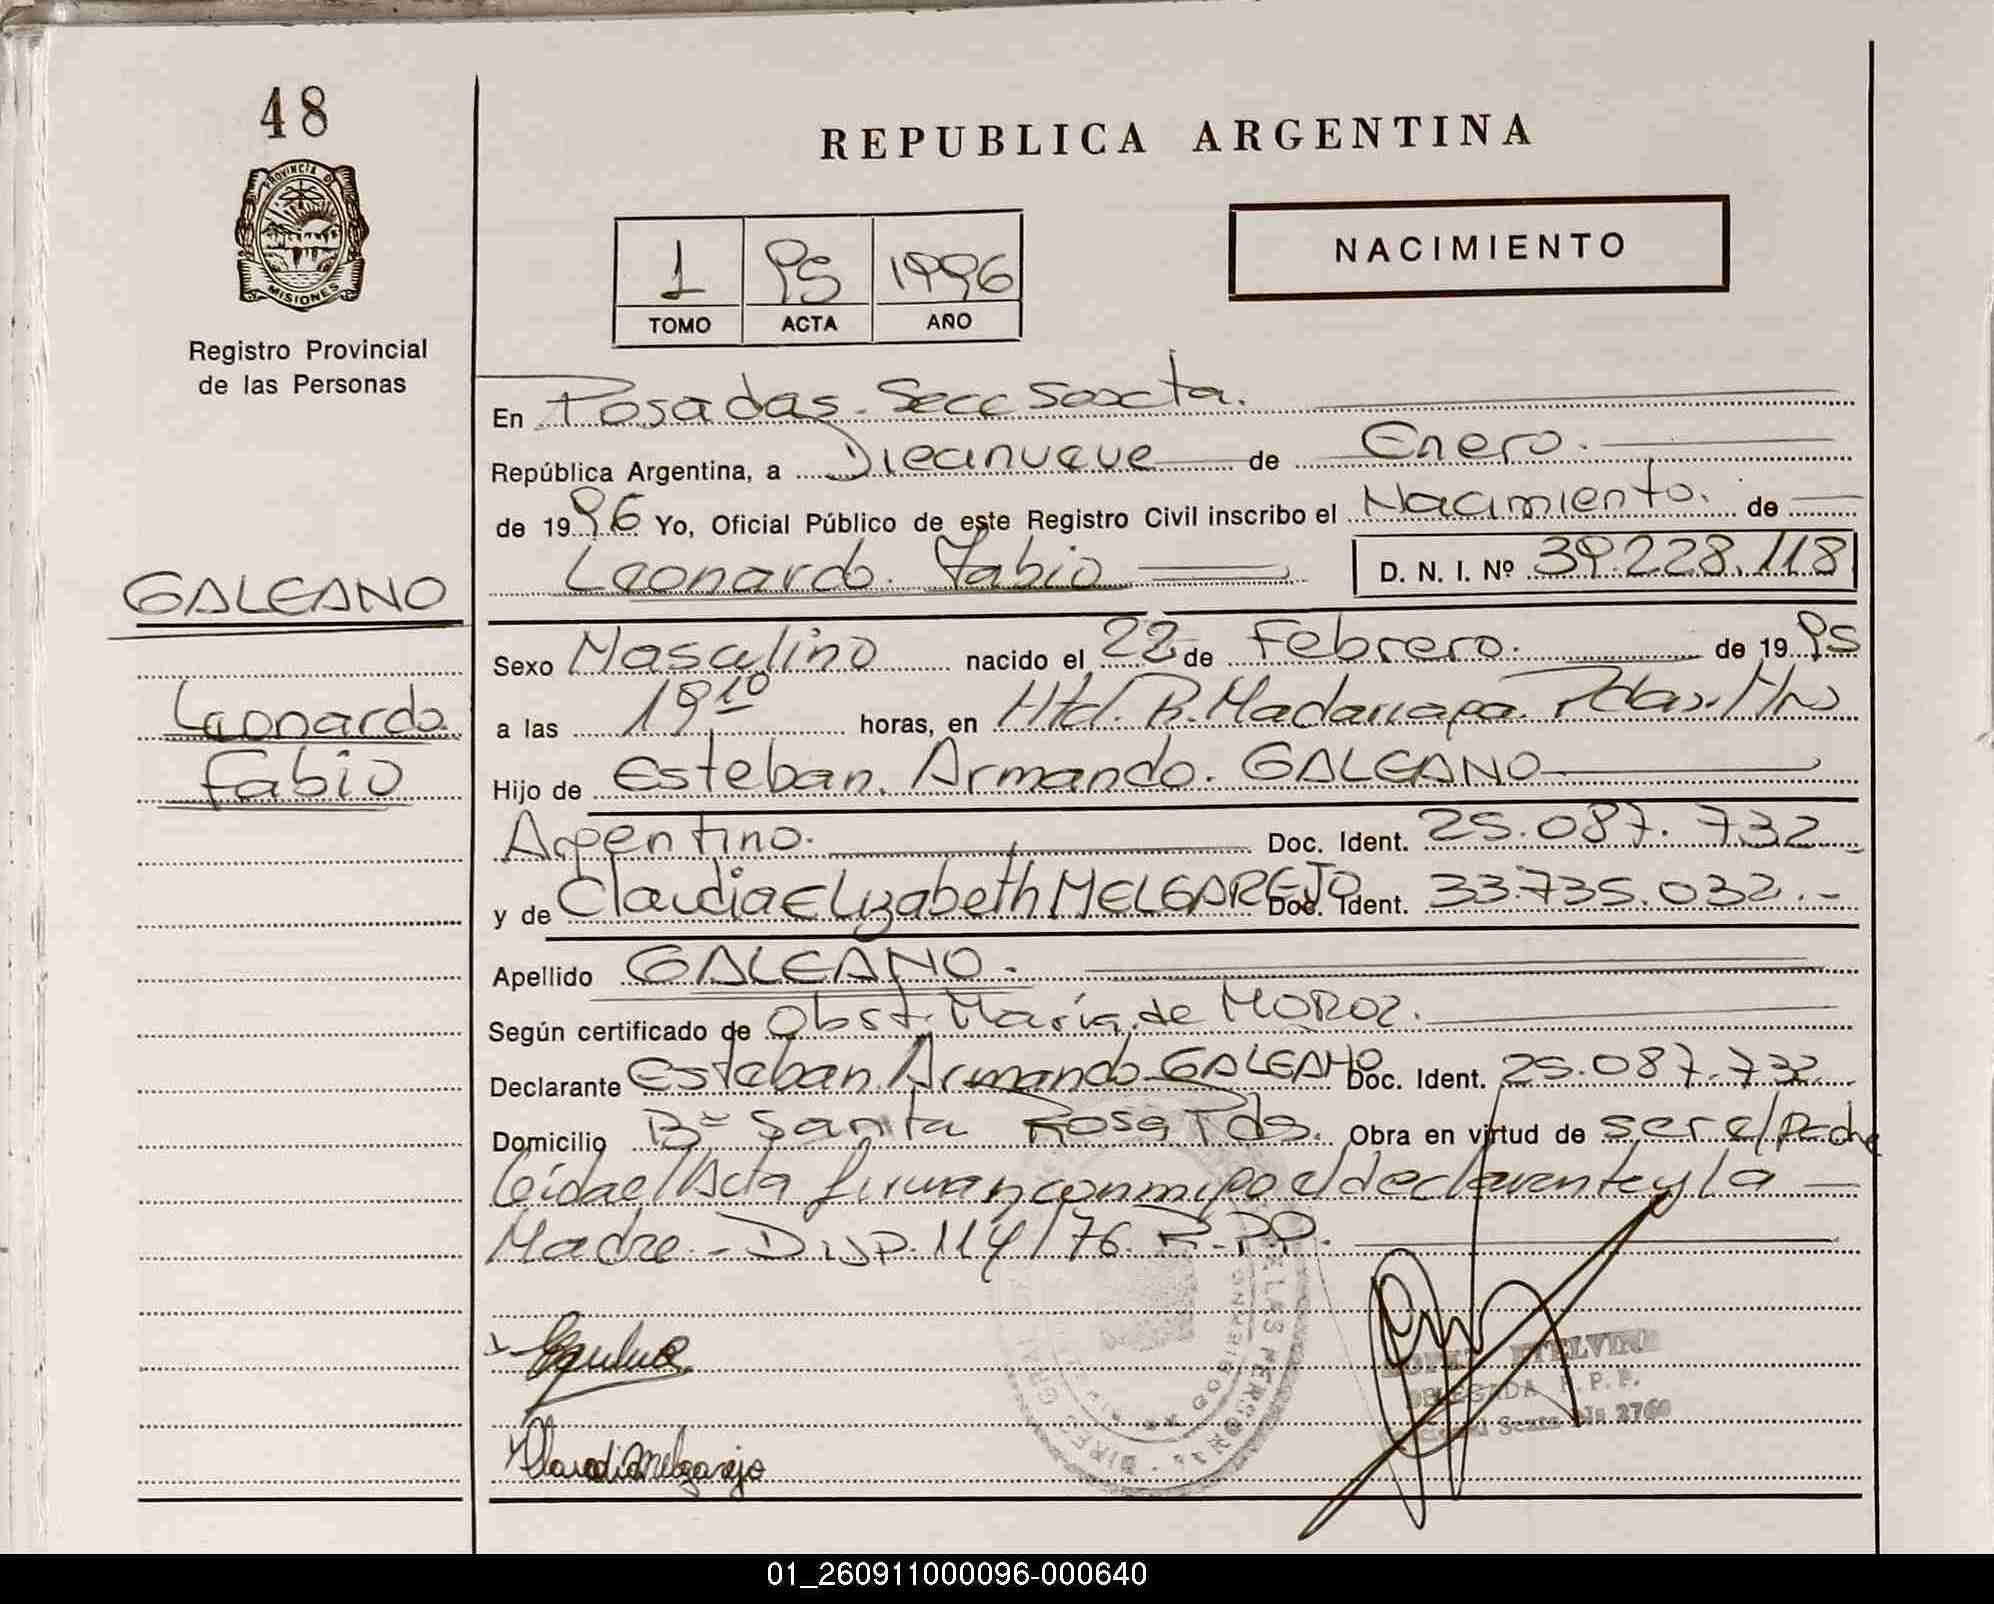 48
PROVINCIA DE
MISIONES
Registro Provincial
de las Personas
GALEANO
Leonardo
Fabio
REPUBLICA ARGENTINA
NACIMIENTO
1 95 1996
TOMO ACTA AÑO
En Posadas. Secc Sexcta.
República Argentina, a Diecinueve de Enero.
de 1996 Yo, Oficial Público de este Registro Civil inscribo el Nacimiento. de
Leonardo. Fabio D. N. I. Nº 39.228.118
Sexo Masculino nacido el 22 de Febrero. de 1995
a las 19 10 horas, en Htal. R. Madariaga. Pdas. Mns
Hijo de Esteban. Armando. GALEANO
Argentino. Doc. Ident. 25.087.732
y de Claudia Elizabeth MELGAREJO Doc. Ident. 33.735.032.-
Apellido GALEANO.
Según certificado de Obst. María de MOROZ.
Declarante Esteban Armando GALEANO Doc. Ident. 25.087.732
Domicilio Bº Santa Rosa Pds. Obra en virtud de ser el padre
leída el Acta firman conmigo el declarante y la
Madre.- Disp. 114/76. R.P.P.
Claudia Melgarejo
DELEGADA R. P. P.
2760
01_260911000096-000640